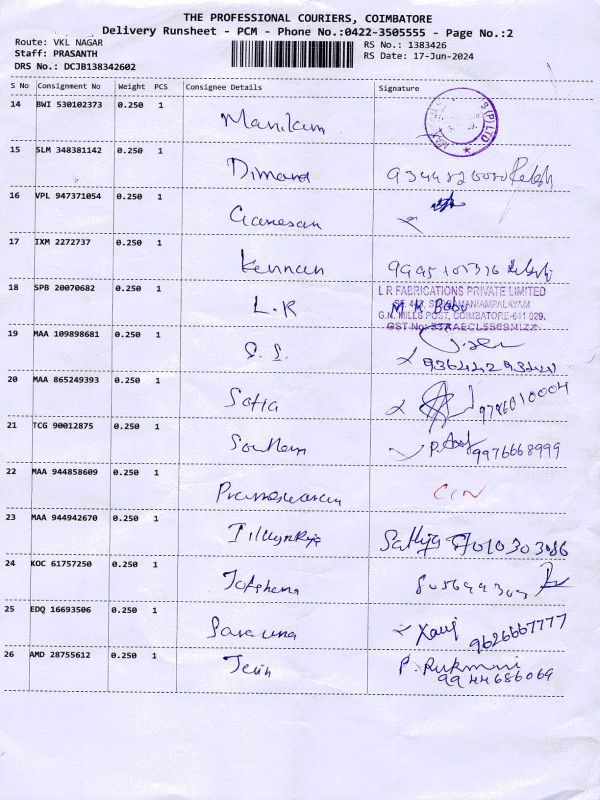 THE PROFESSIONAL COURIERS, COIMBATORE
Delivery Runsheet - PCM - Phone No.:0422-3505555 - Page No.:2
Route: VKL NAGAR
RS No.: 1383426
Staff: PRASANTH
RS Date: 17-Jun-2024
DRS No.: DCJB138342602
S No Consignment No Weight PCS Consignee Details Signature
14 BWI 530102373 0.250 1
Manikam
15 SLM 348381142 0.250 1
Dimond
16 VPL 947371054 0.250 1
Ganesan
17 IXM 2272737 0.250 1
Kennan
18 SPB 20070682 0.250 1
L.R
L R FABRICATIONS PRIVATE LIMITED
G.N. MILLS POST, COIMBATORE-641 029.
19 MAA 109898681 0.250 1
20 MAA 865249393 0.250 1
Sofia 9786010004
21 TCG 90012875 0.250 1
Southern 9976668999
22 MAA 944858609 0.250 1
Prameswaran
23 MAA 944942670 0.250 1
Sathya 7010303086
24 KOC 61757250 0.250 1
25 EDQ 16693506 0.250 1
Saravana 9626667777
26 AMD 28755612 0.250 1
P. Rukmani
9944686069